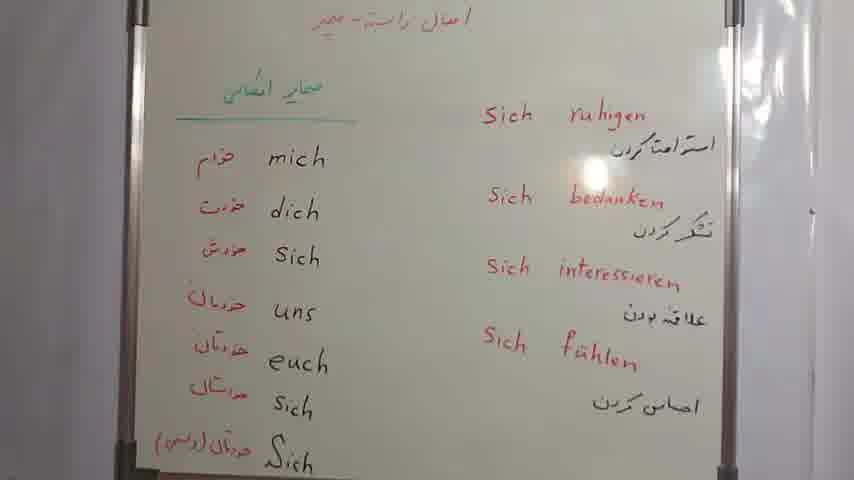 افعال وابسته - ضمیر
ضمایر انعکاسی
mich خودم
dich خودت
sich خودش
uns خودمان
euch خودتان
sich خودشان
Sich خودتان (رسمی)
sich ruhigen
استراحت کردن
sich bedanken
تشکر کردن
sich interessieren
علاقه بودن
sich fühlen
احساس کردن